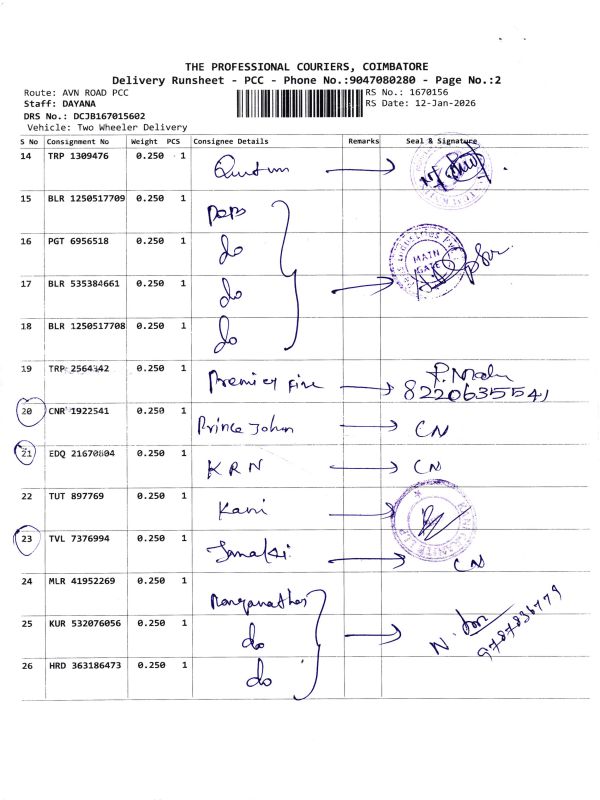 THE PROFESSIONAL COURIERS, COIMBATORE
Delivery Runsheet - PCC - Phone No.:9047080280 - Page No.:2
Route: AVN ROAD PCC
RS No.: 1670156
Staff: DAYANA
RS Date: 12-Jan-2026
DRS No.: DCJB167015602
Vehicle: Two Wheeler Delivery
S No Consignment No Weight PCS Consignee Details Remarks Seal & Signature
14 TRP 1309476 0.250 1
15 BLR 1250517709 0.250 1
16 PGT 6956518 0.250 1 do
MAIN GATE
17 BLR 535384661 0.250 1 do
18 BLR 1250517708 0.250 1 do
19 TRP 2564342 0.250 1 Premier Fine 8220635541
20 CNR 1922541 0.250 1 Prince Johan CN
21 EDQ 21670804 0.250 1 KRN CN
22 TUT 897769 0.250 1 Kani
23 TVL 7376994 0.250 1 Janaki CN
24 MLR 41952269 0.250 1 Ranganathan
25 KUR 532076056 0.250 1 do
26 HRD 363186473 0.250 1 do